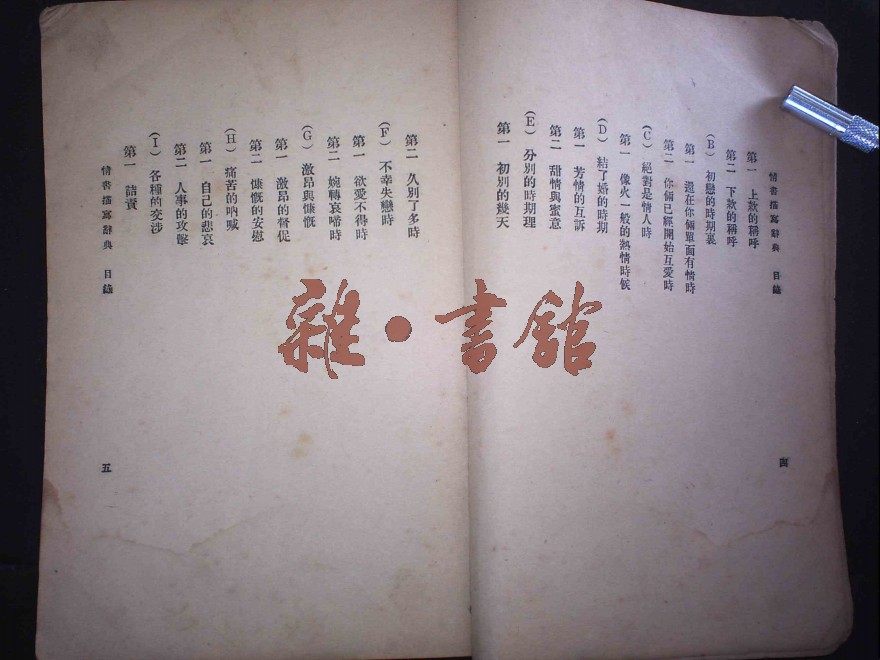 情書描寫辭典 目錄 四
第一 上款的稱呼
第二 下款的稱呼
(B) 初戀的時期裏
第一 還在你倆單面有情時
第二 你倆已經開始互愛時
(C) 絕對是情人時
第一 像火一般的熱情時候
(D) 結了婚的時期
第一 芳情的互訴
第二 甜情與蜜意
(E) 分別的時期理
第一 初別的幾天
第二 久別了多時
(F) 不幸失戀時
第一 欲愛不得時
第二 婉轉哀啼時
(G) 激昂與慷慨
第一 激昂的督促
第二 慷慨的安慰
(H) 痛苦的吶喊
第一 自己的悲哀
第二 人事的攻擊
(I) 各種的交涉
第一 詰責
情書描寫辭典 目錄 五
雜·書館